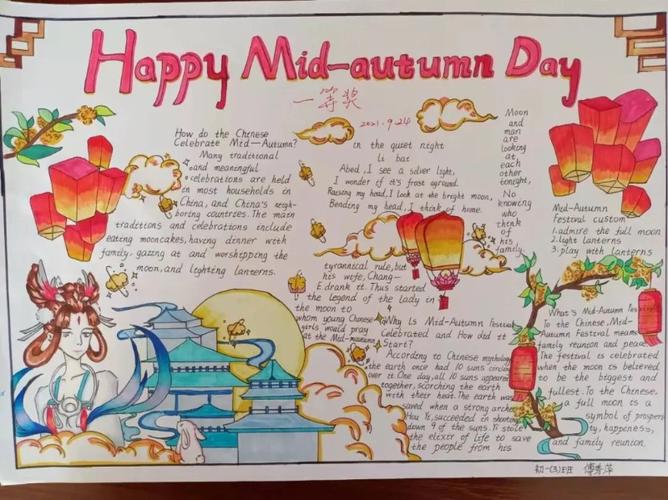 Happy Mid-autumn Day
一等奖
2021.9.24
How do the Chinese
Celebrate Mid-Autumn?
Many traditional
and meaningful
celebrations are held
in most households in
China, and China's neigh-
boring countries. The main
traditions and celebrations include
eating mooncakes, having dinner with
family. gazing at and worshipping the
moon, and lighting lanterns.
in the quiet night
Li bai
Abed, I see a silver light,
I wonder if it's frost aground.
Raising my head, I look at the bright moon,
Bending my head, I think of home.
Moon
and
man
are
looking
at
each
other
tonight,
No
knowing
who
think
of
his
family.
Mid-Autumn
Festival custom
1.admire the full moon
2.light lanterns
3.play with lanterns
tyrannical rule, but
his wife, Chang-
E drank it. Thus started
the legend of the lady in
the moon to
whom young Chinese
girls would pray
at the Mid-
Why Is Mid-Autumn Festival
Celebrated and How did it
Start?
According to Chinese mythology
the earth once had 10 suns circling
over it. One day, all 10 suns appeared
together, Scorching the earth
with their heat. The earth was
saved when a strong archer
Hou Yi, succeeded in shooting
down 9 of the suns. Yi stole
the elixir of life to save
the people from his
What's Mid-Autumn Festival
To the Chinese, Mid-
Autumn Festival means
family reunion and peace.
The festival is celebrated
when the moon is believed
to be the biggest and
fullest. To the Chinese,
a full moon is a
symbol of prosperi
ty, happiness,
and family reunion.
初一(3)班 傅秀萍